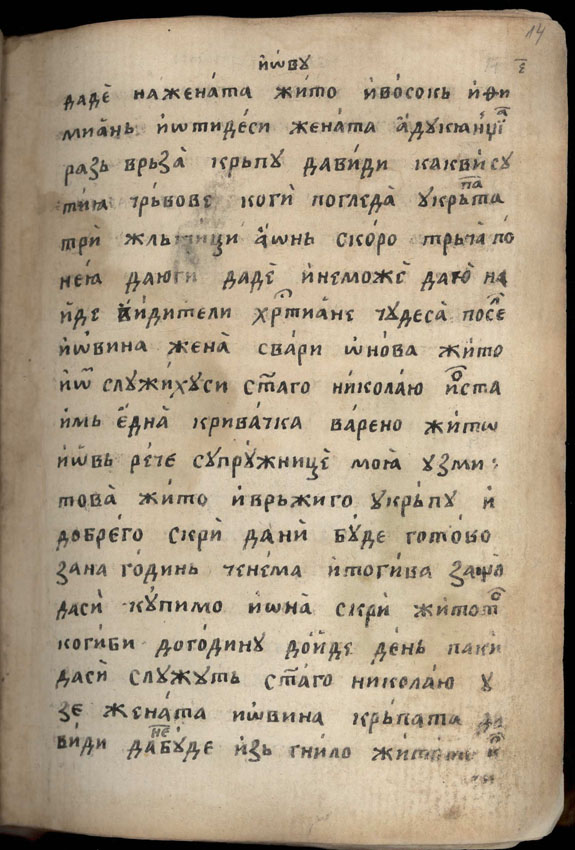 14
и҆ѡвꙋ
є҃
дадѐ наженáта жи́то и҆вóсокь и҆ѳи
миáнь и҆ѡтидéси женáта а҆дꙋкаⷮнцїѝ
разь врьза̀ крьпꙋ дави́ди какви́сꙋ
тиꙗ трьвове коги̏ погледа̀ ꙋкрьпата
три̏ жльтици а҆ѡнь скóро трьча по
неꙗ даюги даде̏ и҆неможе̏ даю̀ на
и҆де ви́дители хрⷭ҇тиане чꙋдеса̀ посⷧ҇е
и҆ѡвина жена̀ свари ѡ҆нова жито
и҆ѡⷡ҇ слꙋжихꙋси стⷭ҇аго николаю и҆ѡста
имь є҆дна̀ кривáчка варено житѡ
и҆ѡвь рéче сꙋпрꙋ́жнице̏ моꙗ ꙋзми
това жито и҆врьжиго ꙋкрьпꙋ и҆
добре́го скри̏ дани̏ бꙋ́де готóво
зана гóдинь ченéма и҆тогива защо̀
даси̏ кꙋ́пимо и҆ѡна̀ скри̏ житотⷪ҇
когиби догóдинꙋ до́йде дéнь паки
даси̏ слꙋжꙋть стⷭ҇аго николаю ꙋ
зе женáта и҆ѡвина крьпата да
ви́ди данебꙋ́де и҆зь гнило